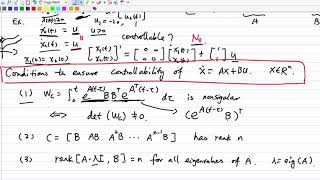 Ex.
ẋ₁(t) = u
ẋ₂(t) = u
controllable? No
[x₁(t) x₂(t)]' = [0 0; 0 0] [x₁(t) x₂(t)] + [1 1] u
Conditions to ensure controllability of ẋ = Ax + Bu. x∈ℝⁿ.
(1) W_c = ∫₀ᵗ e^{A(t-τ)} B Bᵀ e^{Aᵀ(t-τ)} dτ is nonsingular
⟺ det(W_c) ≠ 0. (e^{A(t-τ)} B)ᵀ
(2) C = [B AB A²B ... A^{n-1}B] has rank n
(3) rank [A-λI, B] = n for all eigenvalues of A. λ = eig(A).